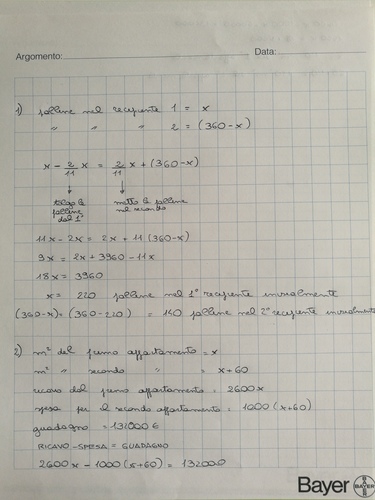 Argomento: Data:
1) palline nel recipiente 1 = x
" " " 2 = (360-x)
x - 2/11 x = 2/11 x + (360-x)
tolgo le metto le palline
palline nel secondo
dal 1°
11x - 2x = 2x + 11 (360-x)
9x = 2x + 3960 - 11x
18x = 3960
x = 220 palline nel 1° recipiente inizialmente
(360-x) = (360-220) = 140 palline nel 2° recipiente inizialmente
2) m² del primo appartamento = x
m² " secondo " = x+60
ricavo dal primo appartamento = 2600x
spesa per il secondo appartamento = 1000 (x+60)
guadagno = 132000 €
RICAVO - SPESA = GUADAGNO
2600x - 1000 (x+60) = 132000
Bayer
BAYER